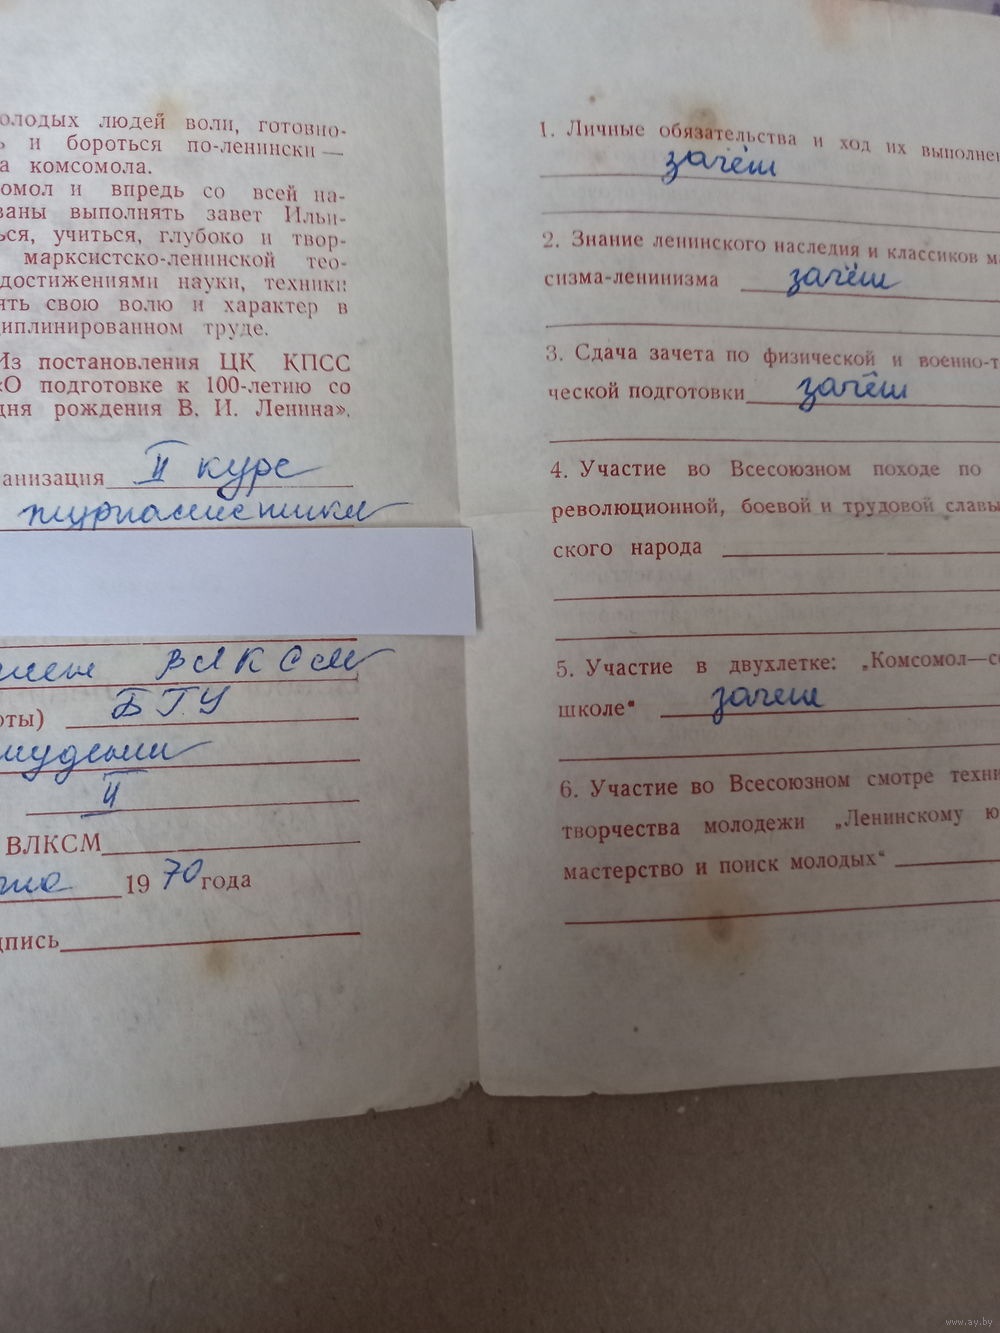 олодых людей воли, готовно-
ь и бороться по-ленински —
а комсомола.
омол и впредь со всей на-
ваны выполнять завет Ильи-
ься, учиться, глубоко и твор-
марксистско-ленинской тео-
достижениями науки, техники
ять свою волю и характер в
циплинированном труде.
Из постановления ЦК КПСС
«О подготовке к 100-летию со
дня рождения В. И. Ленина».
анизация II курс
журналистики
член ВЛКСМ
оты) БГУ
студент
II
ВЛКСМ
1970 года
дпись
1. Личные обязательства и ход их выполнен
зачёт
2. Знание ленинского наследия и классиков ма
сизма-ленинизма зачёт
3. Сдача зачета по физической и военно-т
ческой подготовки зачёт
4. Участие во Всесоюзном походе по
революционной, боевой и трудовой славы
ского народа
5. Участие в двухлетке: „Комсомол—се
школе" зачет
6. Участие во Всесоюзном смотре техни
творчества молодежи „Ленинскому ю
мастерство и поиск молодых"
www.ay.by